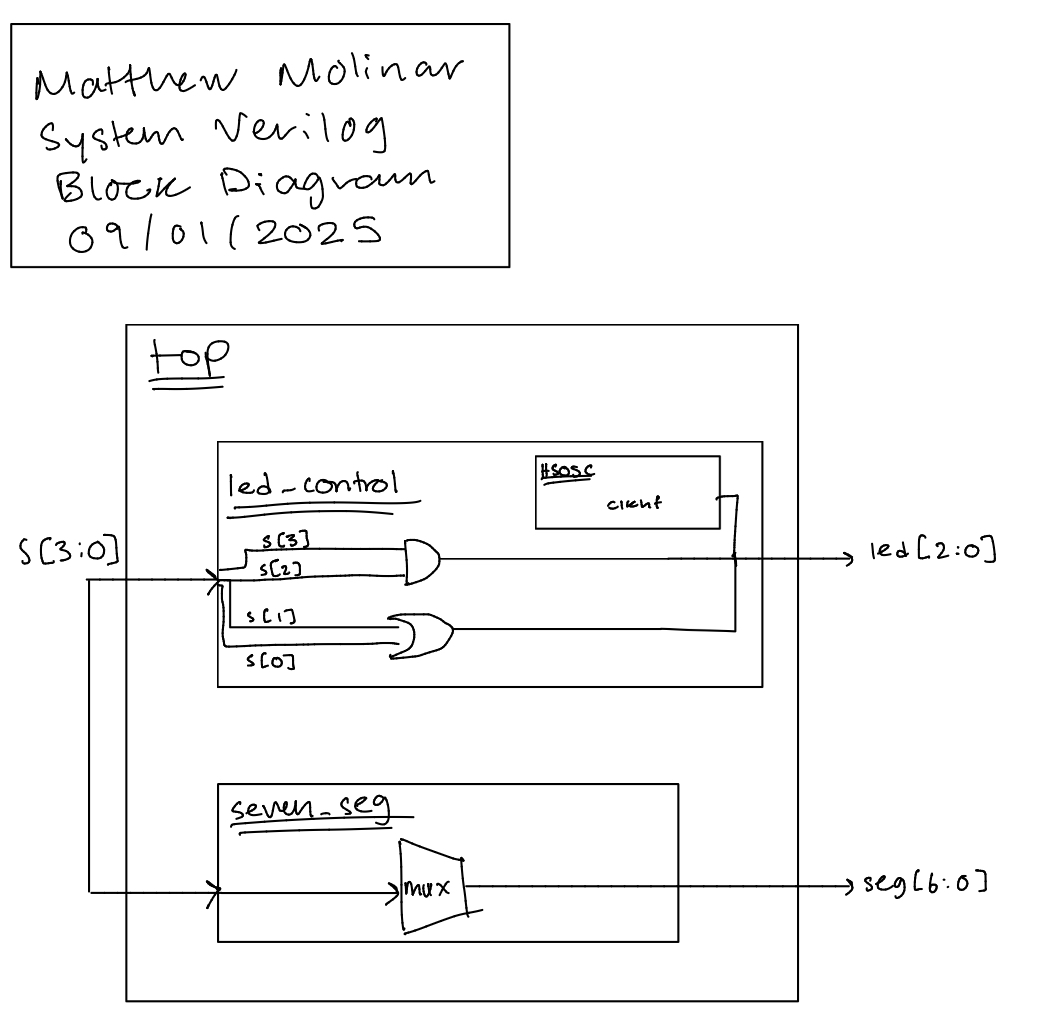 Matthew Molinar
System Verilog
Block Diagram
09/01/2025
top
led_control
HSOSC
s[3]
s[2]
S[3:0]
led[2:0]
s[1]
s[0]
seven_seg
mux
seg[6:0]